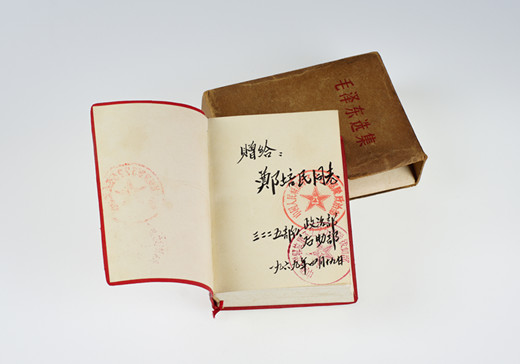 毛泽东选集
赠给：
郑培民同志
三二二五部队政治部
后勤部
一九六九年四月廿九日